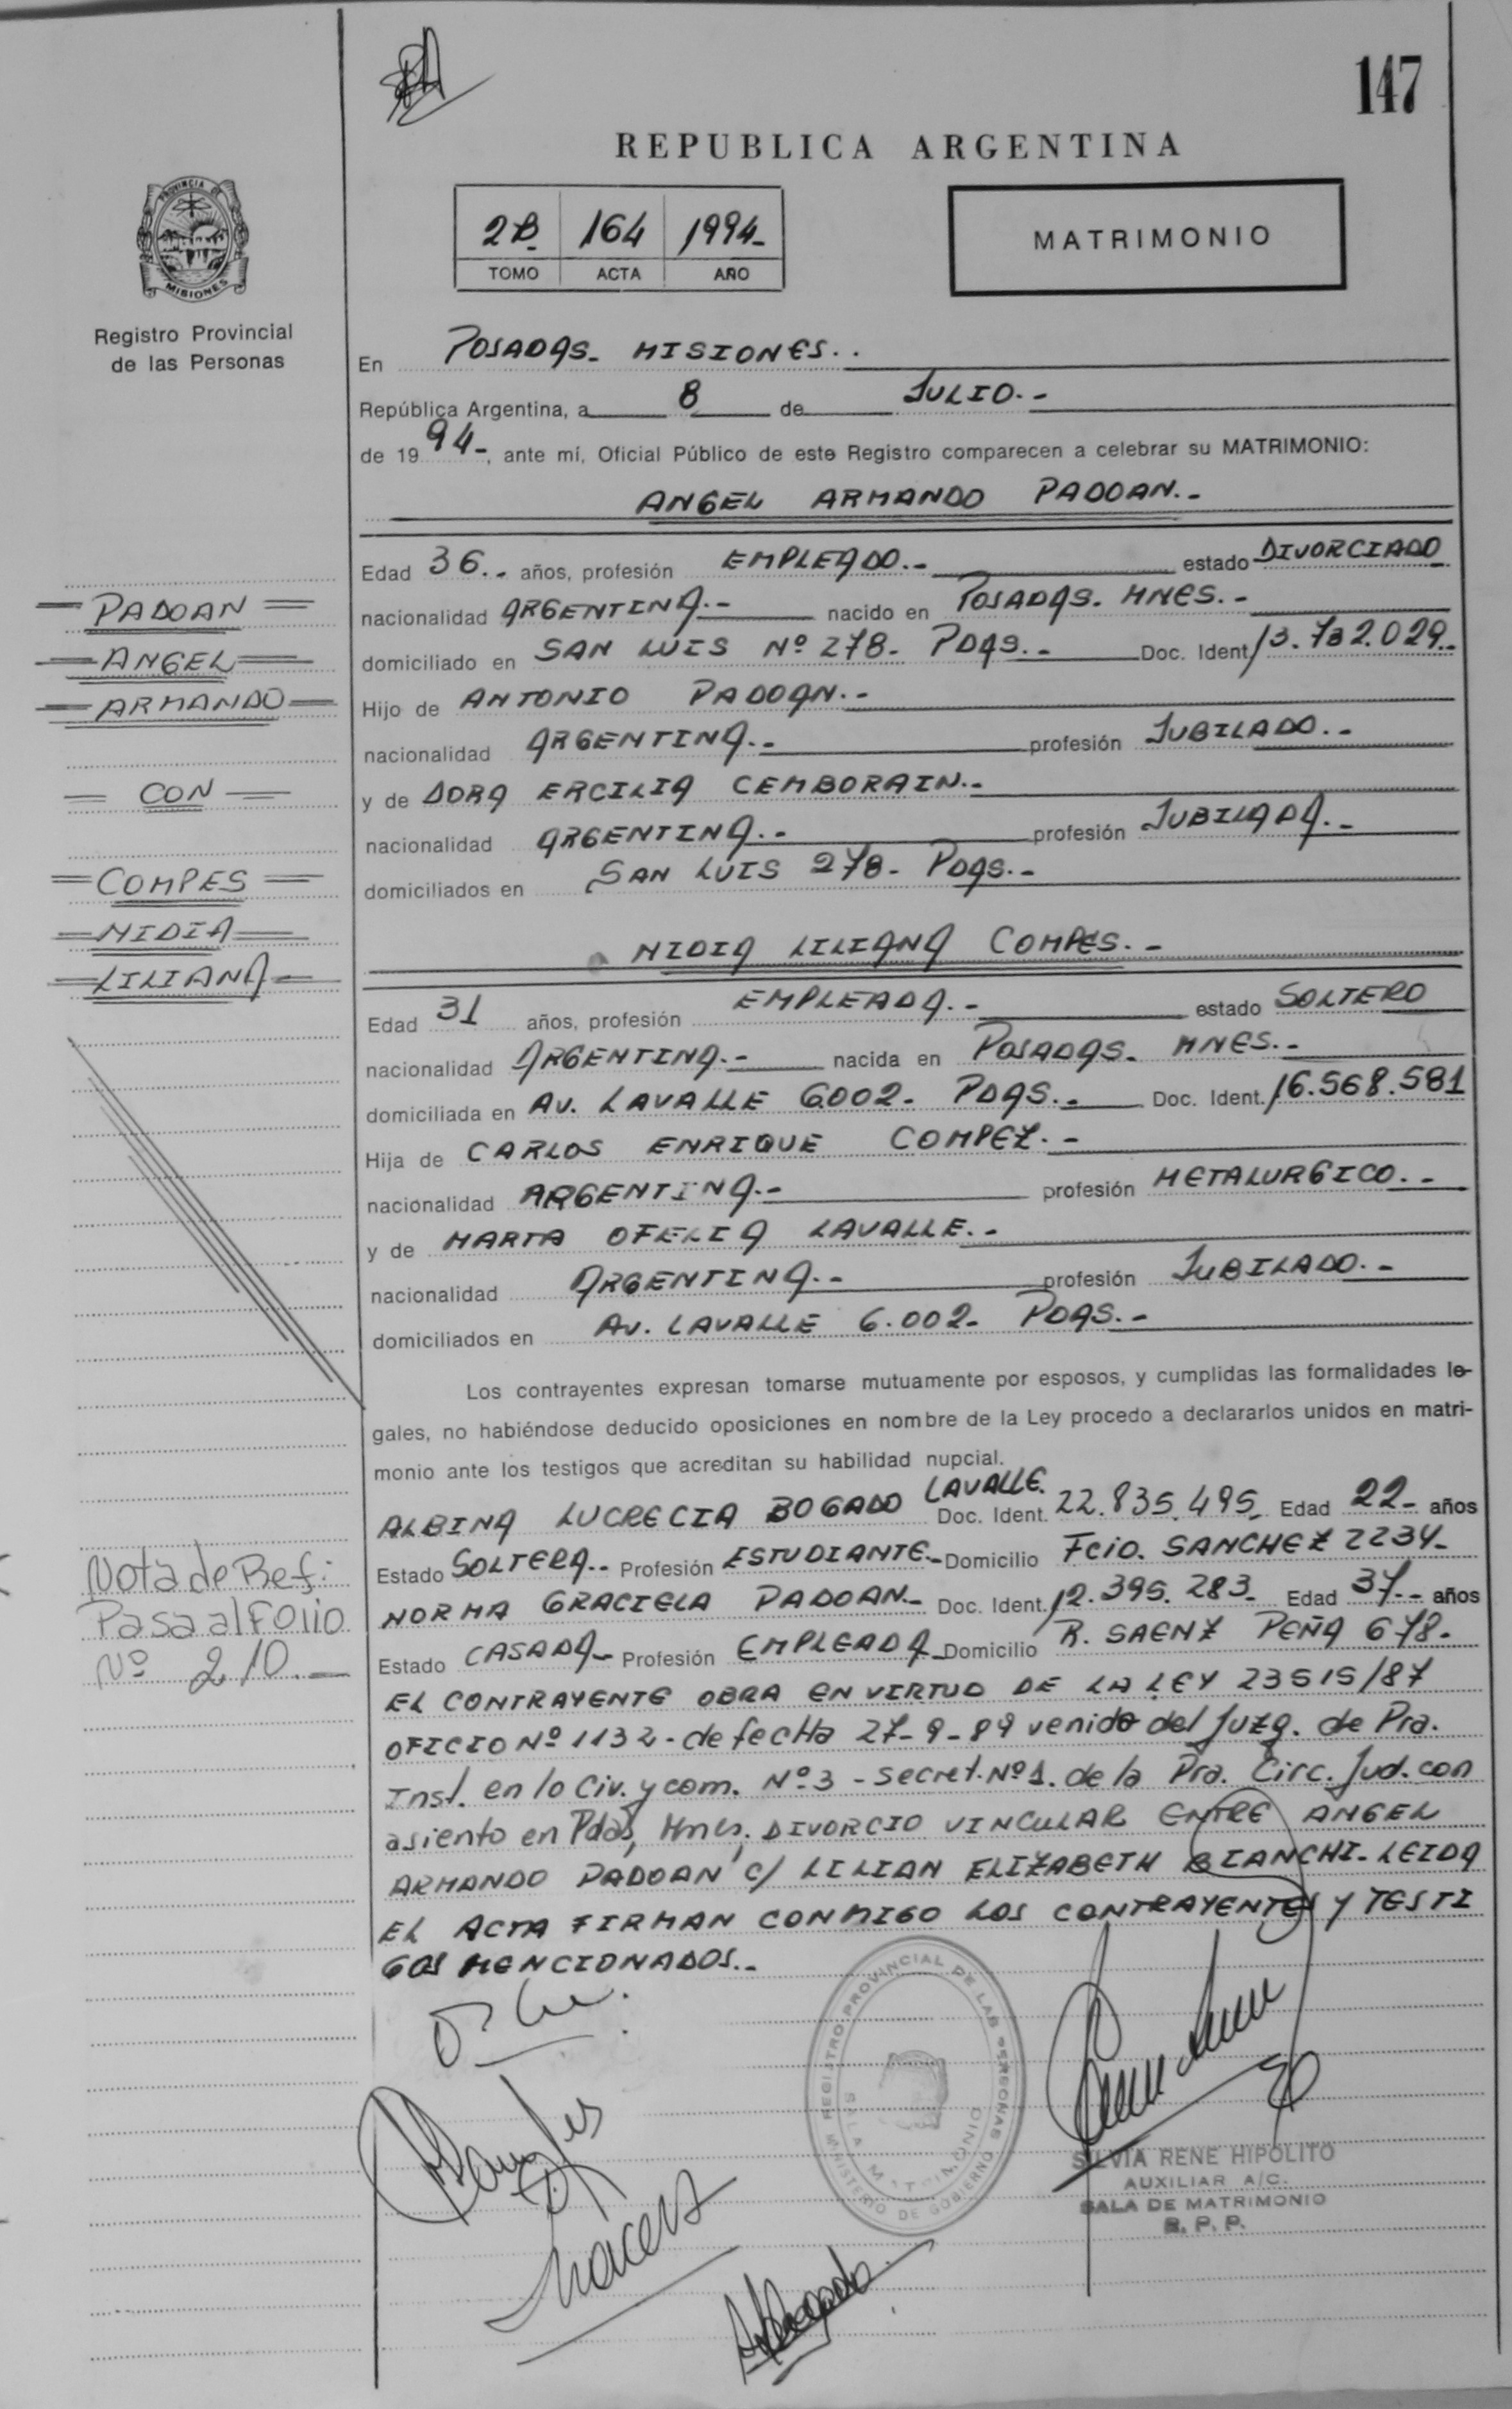 147
REPUBLICA ARGENTINA
PROVINCIA DE
MISIONES
Registro Provincial
de las Personas
2B. 164 1994-
TOMO ACTA AÑO
MATRIMONIO
En POSADAS- MISIONES..
República Argentina, a 8 de JULIO.-
de 1994-, ante mí, Oficial Público de este Registro comparecen a celebrar su MATRIMONIO:
ANGEL ARMANDO PADOAN.-
Edad 36.. años, profesión EMPLEADO.- estado DIVORCIADO
nacionalidad ARGENTINA.- nacido en POSADAS. MNES.-
domiciliado en SAN LUIS Nº 278- PDAS.- Doc. Ident. 13.732.029.-
Hijo de ANTONIO PADOAN.-
nacionalidad ARGENTINA.- profesión JUBILADO.-
y de DORA ERCILIA CEMBORAIN.-
nacionalidad ARGENTINA.- profesión JUBILADA.-
domiciliados en SAN LUIS 278- PDAS.-
NIDIA LILIANA COMPES.-
Edad 31 años, profesión EMPLEADA.- estado SOLTERO
nacionalidad ARGENTINA.- nacida en POSADAS- MNES.-
domiciliada en AV. LAVALLE 6002- PDAS.- Doc. Ident. 16.568.581
Hija de CARLOS ENRIQUE COMPEZ.-
nacionalidad ARGENTINA.- profesión METALURGICO.-
y de MARTA OFELIA LAVALLE.-
nacionalidad ARGENTINA.- profesión JUBILADO.-
domiciliados en AV. LAVALLE 6.002- PDAS.-
Los contrayentes expresan tomarse mutuamente por esposos, y cumplidas las formalidades le-
gales, no habiéndose deducido oposiciones en nombre de la Ley procedo a declararlos unidos en matri-
monio ante los testigos que acreditan su habilidad nupcial.
ALBINA LUCRECIA BOGADO LAVALLE. Doc. Ident. 22.835.495. Edad 22- años
Estado SOLTERA.- Profesión ESTUDIANTE.- Domicilio Fcio. SANCHEZ 2234-
NORMA GRACIELA PADOAN.- Doc. Ident. 12.395.283- Edad 37.- años
Estado CASADA- Profesión EMPLEADA- Domicilio R. SAENZ PEÑA 678-
EL CONTRAYENTE OBRA EN VIRTUD DE LA LEY 23515/87
OFICIO Nº 1132- de fecHa 27-9-89 venido del Juzg. de Pra.
Inst. en lo Civ. y com. Nº 3 - secret. Nº 1. de la Pra. Circ. Jud. con
asiento en Pdas, Mnes, DIVORCIO VINCULAR ENTRE ANGEL
ARMANDO PADOAN c/ LILIAN ELIZABETH BIANCHI- LEIDA
EL ACTA FIRMAN CONMIGO LOS CONTRAYENTES Y TESTI
GOS MENCIONADOS.-
REGISTRO PROVINCIAL DE LAS PERSONAS
MINISTERIO DE GOBIERNO
SALA MATRIMONIO
SILVIA RENE HIPOLITO
AUXILIAR A/C.
SALA DE MATRIMONIO
R. P. P.
PADOAN
ANGEL
ARMANDO
CON
COMPES
NIDIA
LILIANA
Nota de Ref:
Pasa al Folio
Nº 210.-